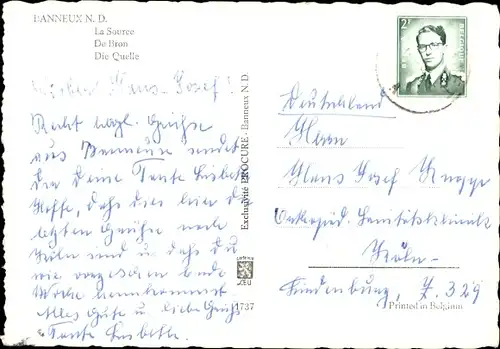 BANNEUX N. D.
La Source
De Bron
Die Quelle
Lieber Hans-Josef!
Recht herzl. Grüße
aus Banneux sendet
Dir Deine Tante Lisbeth
Hoffe, daß dies hier die
letzten Grüße nach
Köln sind u. daß du
wie vorgesehen Ende
Woche heimkommst
Alles Gute u. liebe Grüße
Tante Lisbeth.
Exclusivité PROCURE - Banneux N. D.
1737
2F
Deutschland
Herrn
Hans Josef Knopp
Universitätsklinik
Köln-
Lindenburg, Z. 329
Printed in Belgium